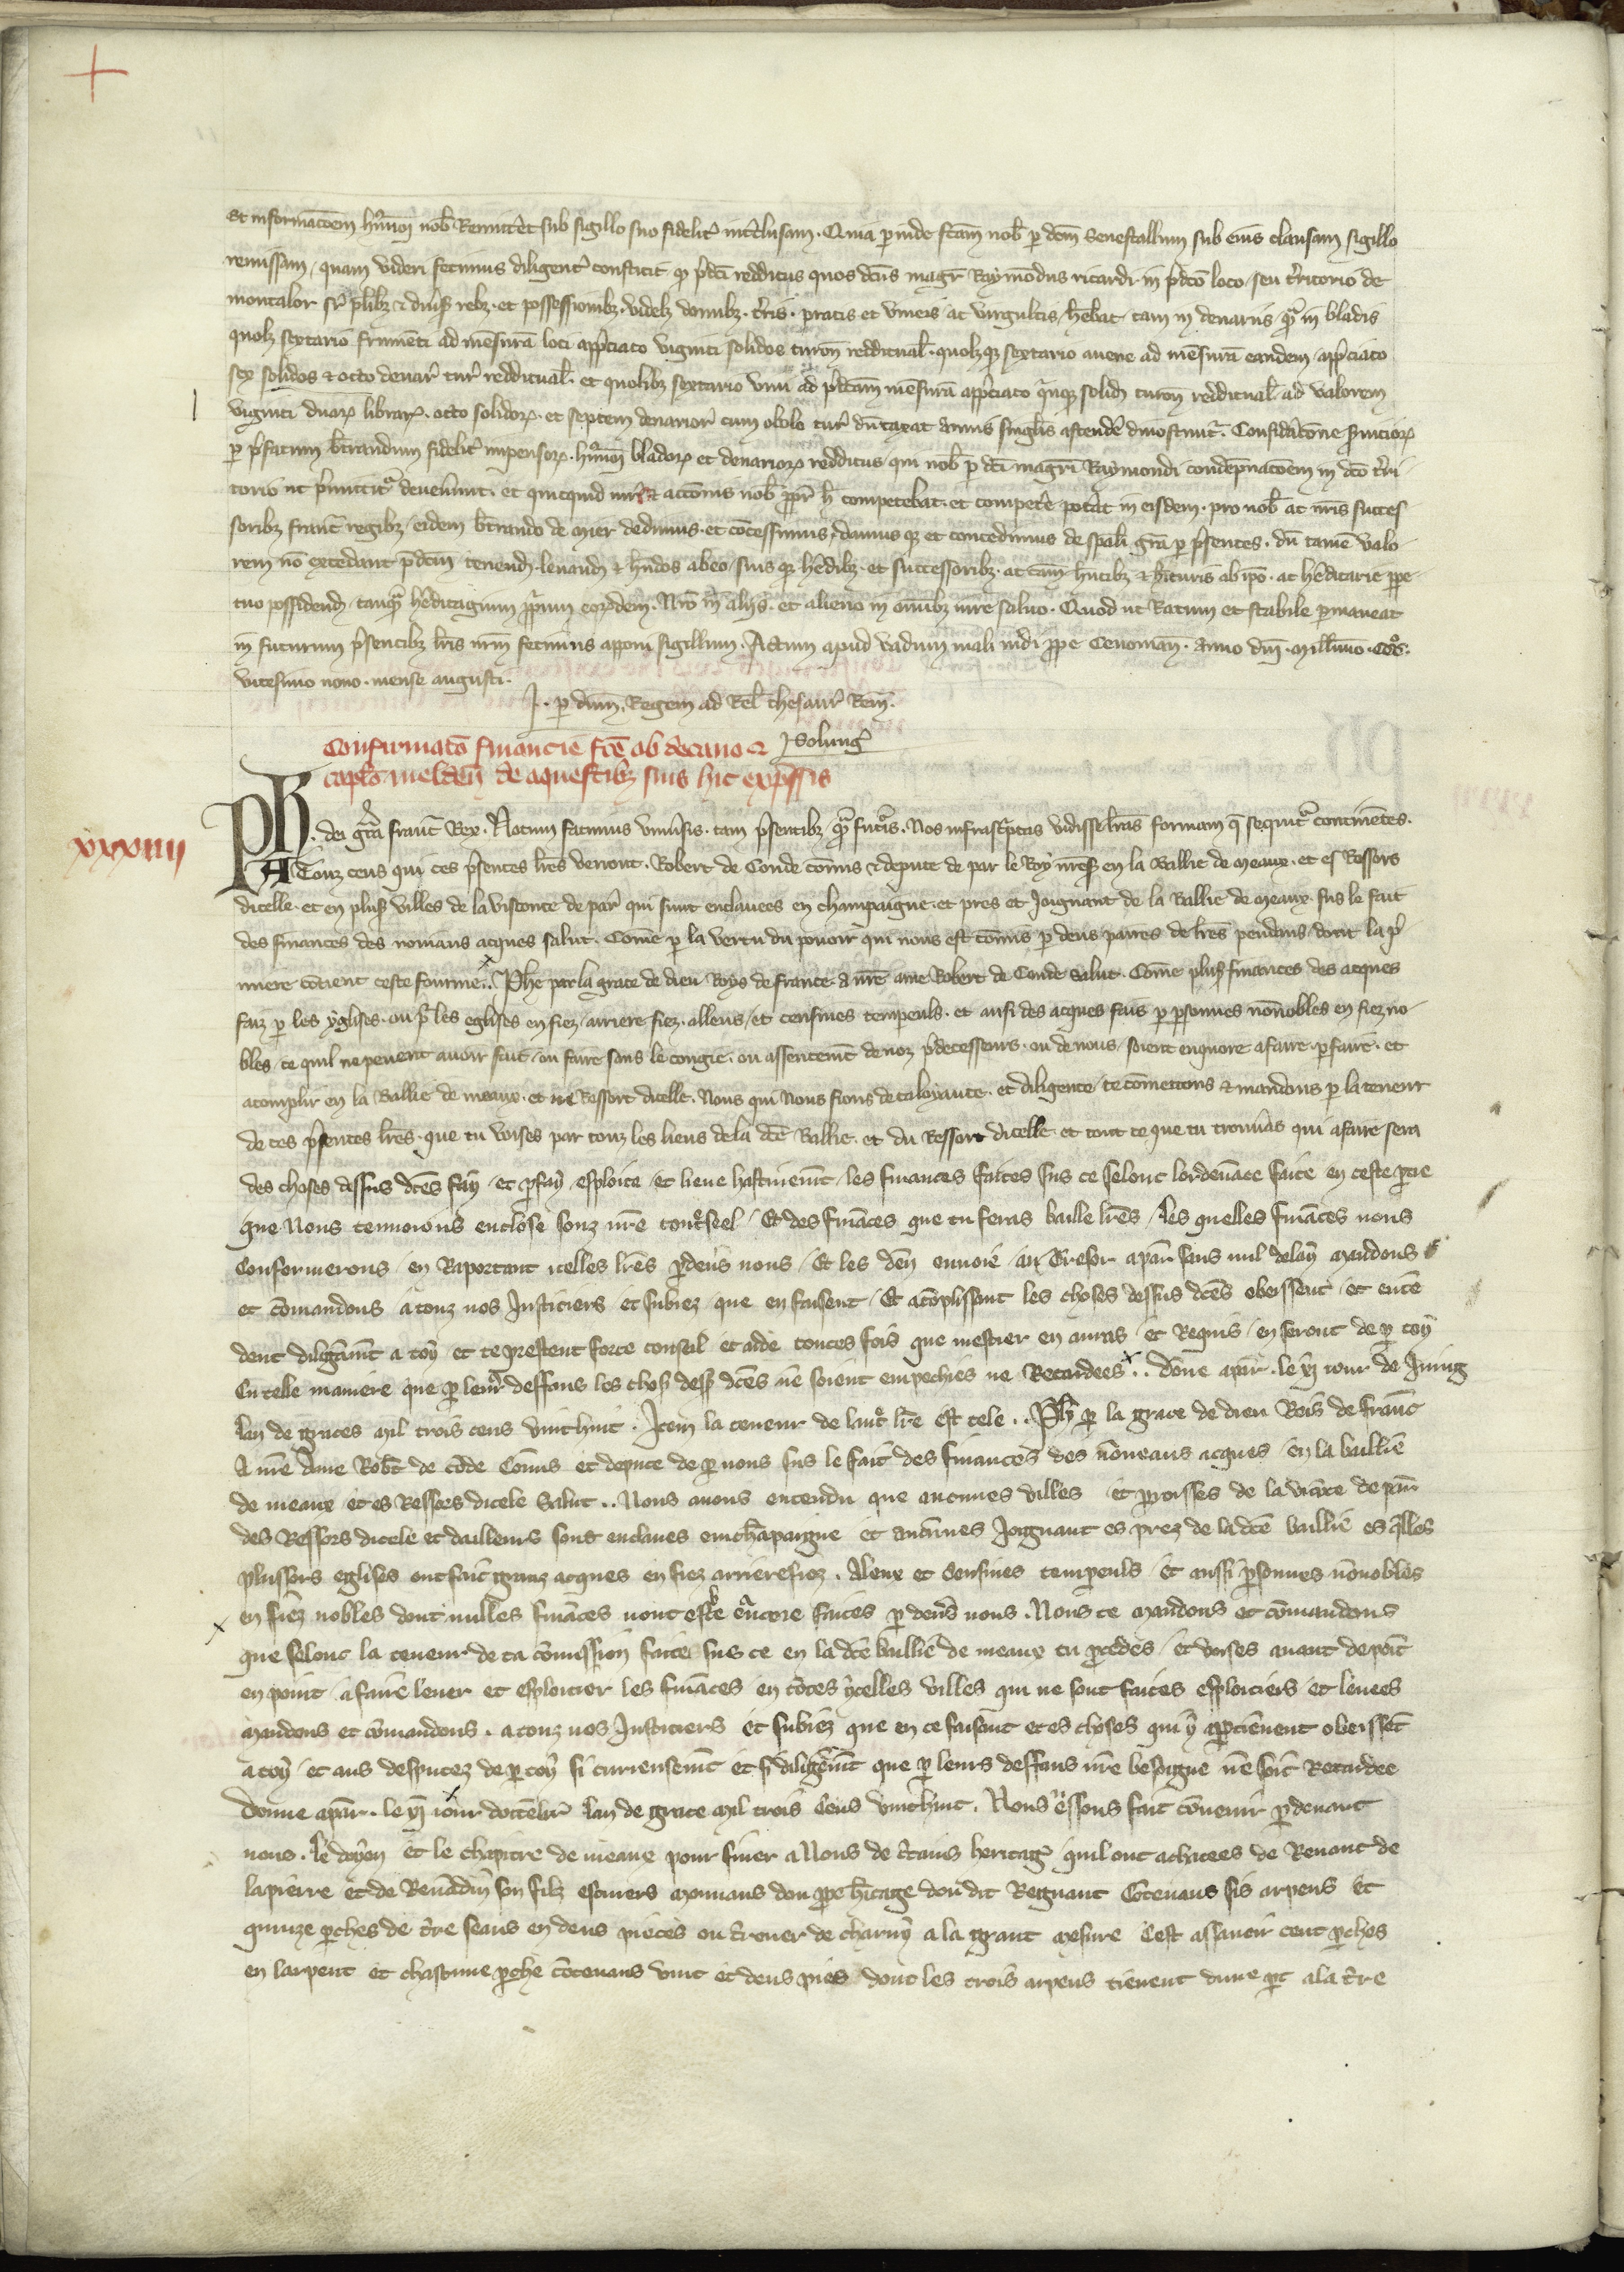 et informacōem hmōi nob̄ Remitt̄et sub sigillo suo fidelit̄ int̄clusam. Quia p inde fc̄am nob̄ p dc̄m Senescallum sub eius clausam sigillo
remissam, quam videri fecimus diligent̄ constitit q p̄dc̄i redditus quos dc̄us magr̄ Raymōdus ricardi in p̄dc̄o loco seu t̄ritorio de
montalor sr̄ pl̄ibz & diūs rebz et possessionibz videlz domibz. t̄ris. pratis et vineis ac virgultis hēbat tam in denariis q̄ in bladis
quolz sextario frumēti ad mēsurā loci app̄ciato viginti solidos turon̄ reddituāl. quolzqz sextario auene ad mēsurā eandem app̄ciato
sex solidos & octo denar̄ tur̄ reddituāl. et quolibz sextario vini ad p̄dc̄am mēsurā app̄ciato q̄nqz solid̄ turon̄ reddituāl ad valorem
viginti duarz librarz. octo solidorz. et septem denarior̄ cum obolo tur̄ dūtaxat annis singl̄is ascendē dinoscunt̄. Consid̄acōne s̄uiciorz
p p̄fatum b̄trandum fidelit̄ impensorz. hmōi bladorz et denariorz redditus qui nob̄ p dc̄i magr̄i Raymondi condēpnacōem in dc̄o t̄ri
torio ut p̄mittit̄ deuen̄unt. et quicquid iur̄ & accōnis nob̄ pp̄t̄ h̄ competebat. et compet̄e pot̄at in eisdem. pro nob̄ ac nr̄is succes
soribz franc̄ regibz eidem b̄trando de mer dedimus et cōcessimus, damus qz et concedimus de sp̄ali gr̄a p p̄sentes. dū tamē valo
rem nō excedant p̄dc̄m tenend̄. leuand̄ & h̄ndos ab eo suis qz hēdibz. et successoribz. ac cām h̄ntibz & h̄ituris ab ip̄o. ac hēditarie ppe
tuo possidend̄ tanq̄ hēditagium pp̄rium eorzdem. Nr̄o in aliis. et alieno in om̄ibz iure saluo. Quod ut Ratum et stabile pmaneat
in futurum p̄sentibz lr̄is nr̄m fecimus apponi sigillum. Actum apud vadum mali nidi ppe Cenoman̄. anno dn̄i millimo CCCo.
vicesimo nono. mense augusti.
p dn̄m Regem ad Rel̄ thesaur̄ Rem̄.
Solunḡ
Confirmatō financie fc̄e ab decano &
capl̄o melden̄ de aquestibz suis hic exp̄ssis
xxxiiii
Ph. dei gr̄a franc̄ Rex. Notum facimus vniūsis. tam p̄sentibz q̄ fut̄is. Nos infrasc̄ptas vidisse lr̄as formam q̄ sequit̄ continētes.
A Touz ceus qui ces p̄sentes lr̄es verront. Robert de Conde cōmis & depute de par le Roy nr̄es̄ en la Baillie de meaux. et es Ressors
dicelle. et en plus̄ villes de la visconte de par̄ qui sunt enclauees en champaigne. et pres et Joignant de la Baillie de meaux. sus le fait
des finances des nouiaus acques salut. Comē p la vertu du pouoir qui nous est cōmis p deus paires de lr̄es pendans dont la p̄
miere cōtient ceste fourme. Phe par la grace de dieu Roys de france. a nr̄e ame Robert de Conde salut. Comē plus̄ finances des acques
faiz p les yglises. ou p̄ les eglises en fiez arriere fiez. alleus et censiues tempeuls. et ausi des acques fais p psonnes nōnobles en fiez no
bles ce quil ne peuent auoir fait ou faire sans le congie. ou assentemēt de noz p̄decesseurs. ou de nous soient enquore a faire. pfaire. et
acomplir en la Baillie de meaux. et ou Ressort dicelle. Nous qui Nous fions de ta loyaute. et diligence te cōmettons & mandons p la teneur
de ces p̄sentes lr̄es. que tu voises par touz les lieus de la dc̄e Baillie. et du Ressort dicelle et tout ce que tu trouūas qui a faire sera
des choses dessus dc̄es fay et pfay esploite et lieue hastiuemēt les finances faites sus ce selonc lordenāce faite en ceste ptie
que Nous tenuoions enclose souz nr̄e cont̄seel. Et des fināces que tu feras baille lr̄es les quelles fināces nous
Confermerons en Raportant icelles lr̄es pdeūs nous. Et les den̄ enuoie au Tresor a par̄ sans nul delay mandons
et cōmandons a touz nos Justiciers et subiez que en faisent Et acōplissant les choses dessus dc̄es obeissent et entē
dent diligāmt a toy et te prestent force conseil et aide toutes fois que mestier en auras et Requis en seront de p toy
En telle maniere que p leur̄ deffaus les chos̄ dess̄ dc̄es ne soient empechies ne Retardees. dōne a par̄. le vj iour de Juing
lan de graces mil trois cens vinthuit. Item la teneur de laut̄ lr̄e est tele. Ph̄ p la grace de dieu Rois de franc̄
A nr̄e Ame Rob̄t de cōde Cōmis et depute de p nous sus le fait des finances des nōueaus acques en la baillie
de meaux et es Ressors dicele Salut. Nous auons entendu que aucunes villes et proisses de la vicōte de par̄
des Ressors dicele et dailleurs sont enclaues en chāpaigne et aucūnes Joignant es prez de la dc̄e baillie es q̄lles
plussors eglises ont fait granz acques en fiez arrierefiez. Aleux et Censiues tempeuls et aussi psonnes nōnobles
en fiez nobles dont nulles fināces nont este encore faites p deūs nous. Nous te mandons et cōmandons
que selonc la teneur de ta cōmission faite sus ce en la dc̄e baillie de meaux tu pcedes et voises auant de point
en point a faire leuer et esploitier les fināces en tōtes ycelles villes qui ne sont faites esploities et leuees
mandons et cōmandons. a touz nos Justiciers et subiez que en ce faisant et es choses qui y aptienent obeissēt
a toy et aus desputez de p toy si curieusemt et si diligēmt que p leurs deffaus nr̄e besoigne ne soit Retardee
donne a par̄. le vj iour doctēbr̄ lan de grace mil trois Cens vinthuit. Nous eussons fait cōuenir pdeuant
nous. le doyen et le chapitre de meaux pour finer a Nous de c̄tains heritaḡ quil ont achatees de Renaut de
la pierre et de Renādin son filz escuiers mouuans dou ppe h̄itage dou dit Regnaut Cōtenans sis arpens et
quinze pches de t̄re seans en deus pieces ou t̄rouer de charny a la grant mesure Cest assauoir cent pches
en larpent et chascune pche cōtenans vint et deus pies dont les trois arpens tienent dune pt a la t̄re